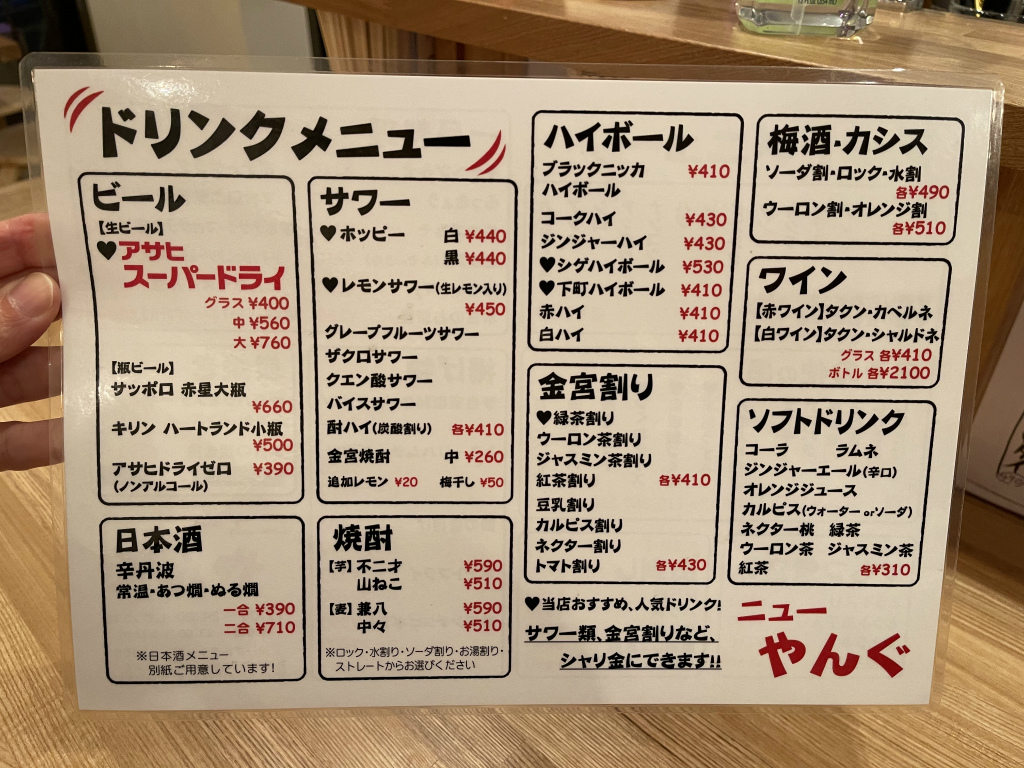 ドリンクメニュー
ビール
【生ビール】
♥アサヒ
スーパードライ
グラス ¥400
中 ¥560
大 ¥760
【瓶ビール】
サッポロ 赤星大瓶
¥660
キリン ハートランド小瓶
¥500
アサヒドライゼロ ¥390
(ノンアルコール)
サワー
♥ホッピー 白 ¥440
黒 ¥440
♥レモンサワー(生レモン入り)
¥450
グレープフルーツサワー
ザクロサワー
クエン酸サワー
バイスサワー
酎ハイ(炭酸割り) 各¥410
金宮焼酎 中 ¥260
追加レモン ¥20 梅干し ¥50
日本酒
辛丹波
常温・あつ燗・ぬる燗
一合 ¥390
二合 ¥710
※日本酒メニュー
別紙ご用意しています!
焼酎
【芋】不二才 ¥590
山ねこ ¥510
【麦】兼八 ¥590
中々 ¥510
※ロック・水割り・ソーダ割り・お湯割り・
ストレートからお選びください
ハイボール
ブラックニッカ ¥410
ハイボール
コークハイ ¥430
ジンジャーハイ ¥430
♥シゲハイボール ¥530
♥下町ハイボール ¥410
赤ハイ ¥410
白ハイ ¥410
金宮割り
♥緑茶割り
ウーロン茶割り
ジャスミン茶割り
紅茶割り 各¥410
豆乳割り
カルピス割り
ネクター割り
トマト割り 各¥430
♥当店おすすめ、人気ドリンク!
サワー類、金宮割りなど、
シャリ金にできます!!
梅酒・カシス
ソーダ割・ロック・水割
各¥490
ウーロン割・オレンジ割
各¥510
ワイン
【赤ワイン】タクン・カベルネ
【白ワイン】タクン・シャルドネ
グラス 各¥410
ボトル 各¥2100
ソフトドリンク
コーラ ラムネ
ジンジャーエール(辛口)
オレンジジュース
カルピス(ウォーター orソーダ)
ネクター桃 緑茶
ウーロン茶 ジャスミン茶
紅茶 各¥310
ニュー
やんぐ